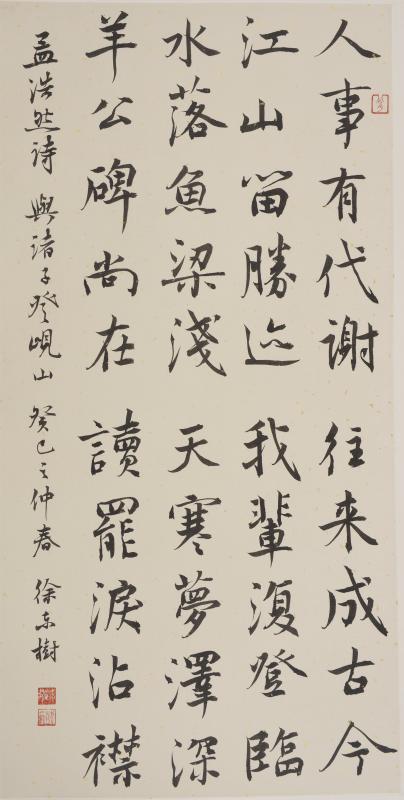 人事有代谢 往来成古今
江山留勝迹 我輩復登臨
水落魚梁淺 天寒夢澤深
羊公碑尚在 讀罷淚沾襟
孟浩然诗 與诸子登峴山 癸巳之仲春 徐东樹